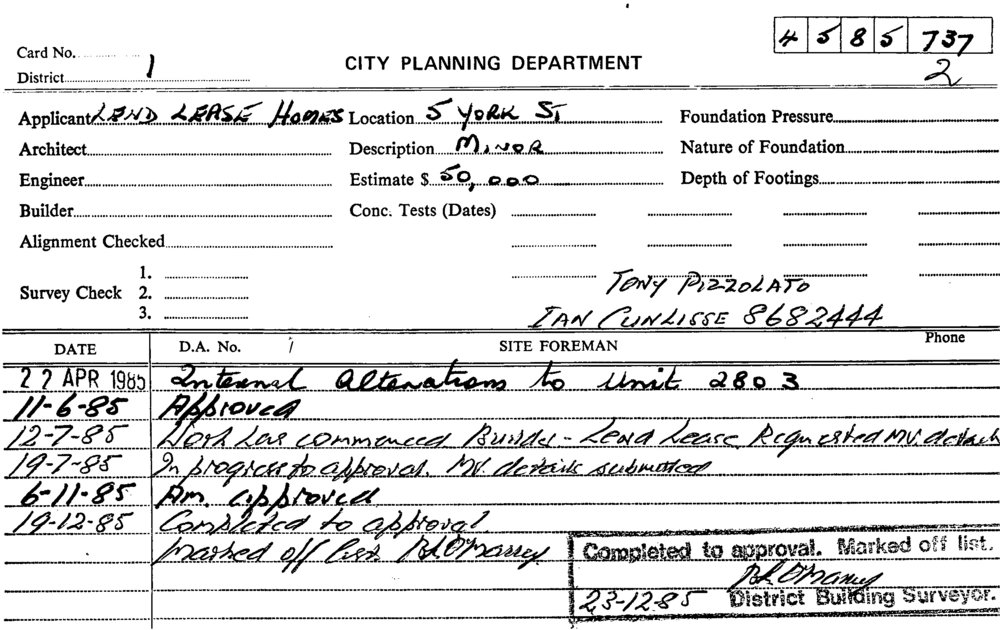 4 5 8 5 737
2
Card No.
District 1
CITY PLANNING DEPARTMENT
Applicant LEND LEASE HOMES Location 5 YORK ST Foundation Pressure
Architect Description MINOR Nature of Foundation
Engineer Estimate $ 50,000 Depth of Footings
Builder Conc. Tests (Dates)
Alignment Checked
Survey Check 1.
2.
3.
TONY PIZZOLATO
IAN CUNLISSE 8682444
DATE D.A. No. / SITE FOREMAN Phone
22 APR 1985 Internal alterations to Unit 2803
11-6-85 Approved
12-7-85 Work has commenced Builder - Lend Lease Requested MV. details
19-7-85 In progress to approval. MV. details submitted
6-11-85 Am. approved
19-12-85 Completed to approval
Marked off
Completed to approval. Marked off list.
23-12-85 District Building Surveyor.